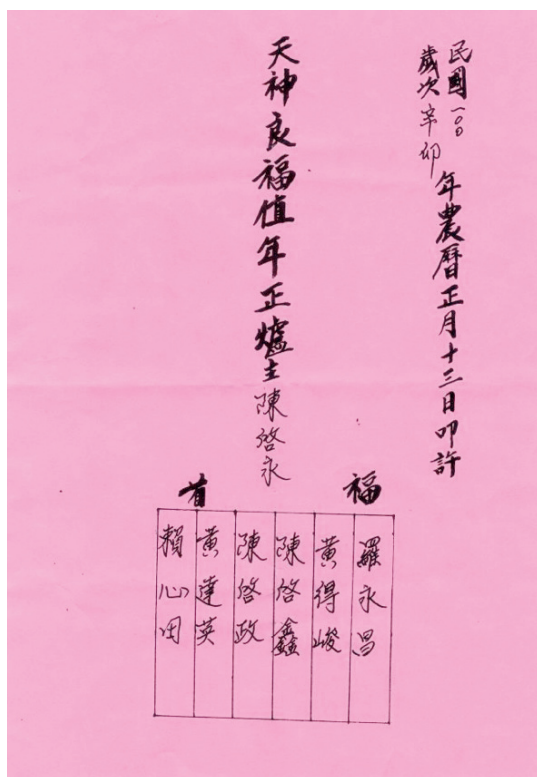 民國一○○
歲次辛卯
年農曆正月十三日叩許
天神良福值年正爐主陳啓永
福首
羅永昌
黃得峻
陳啓鑫
陳啓政
黃達英
賴心田